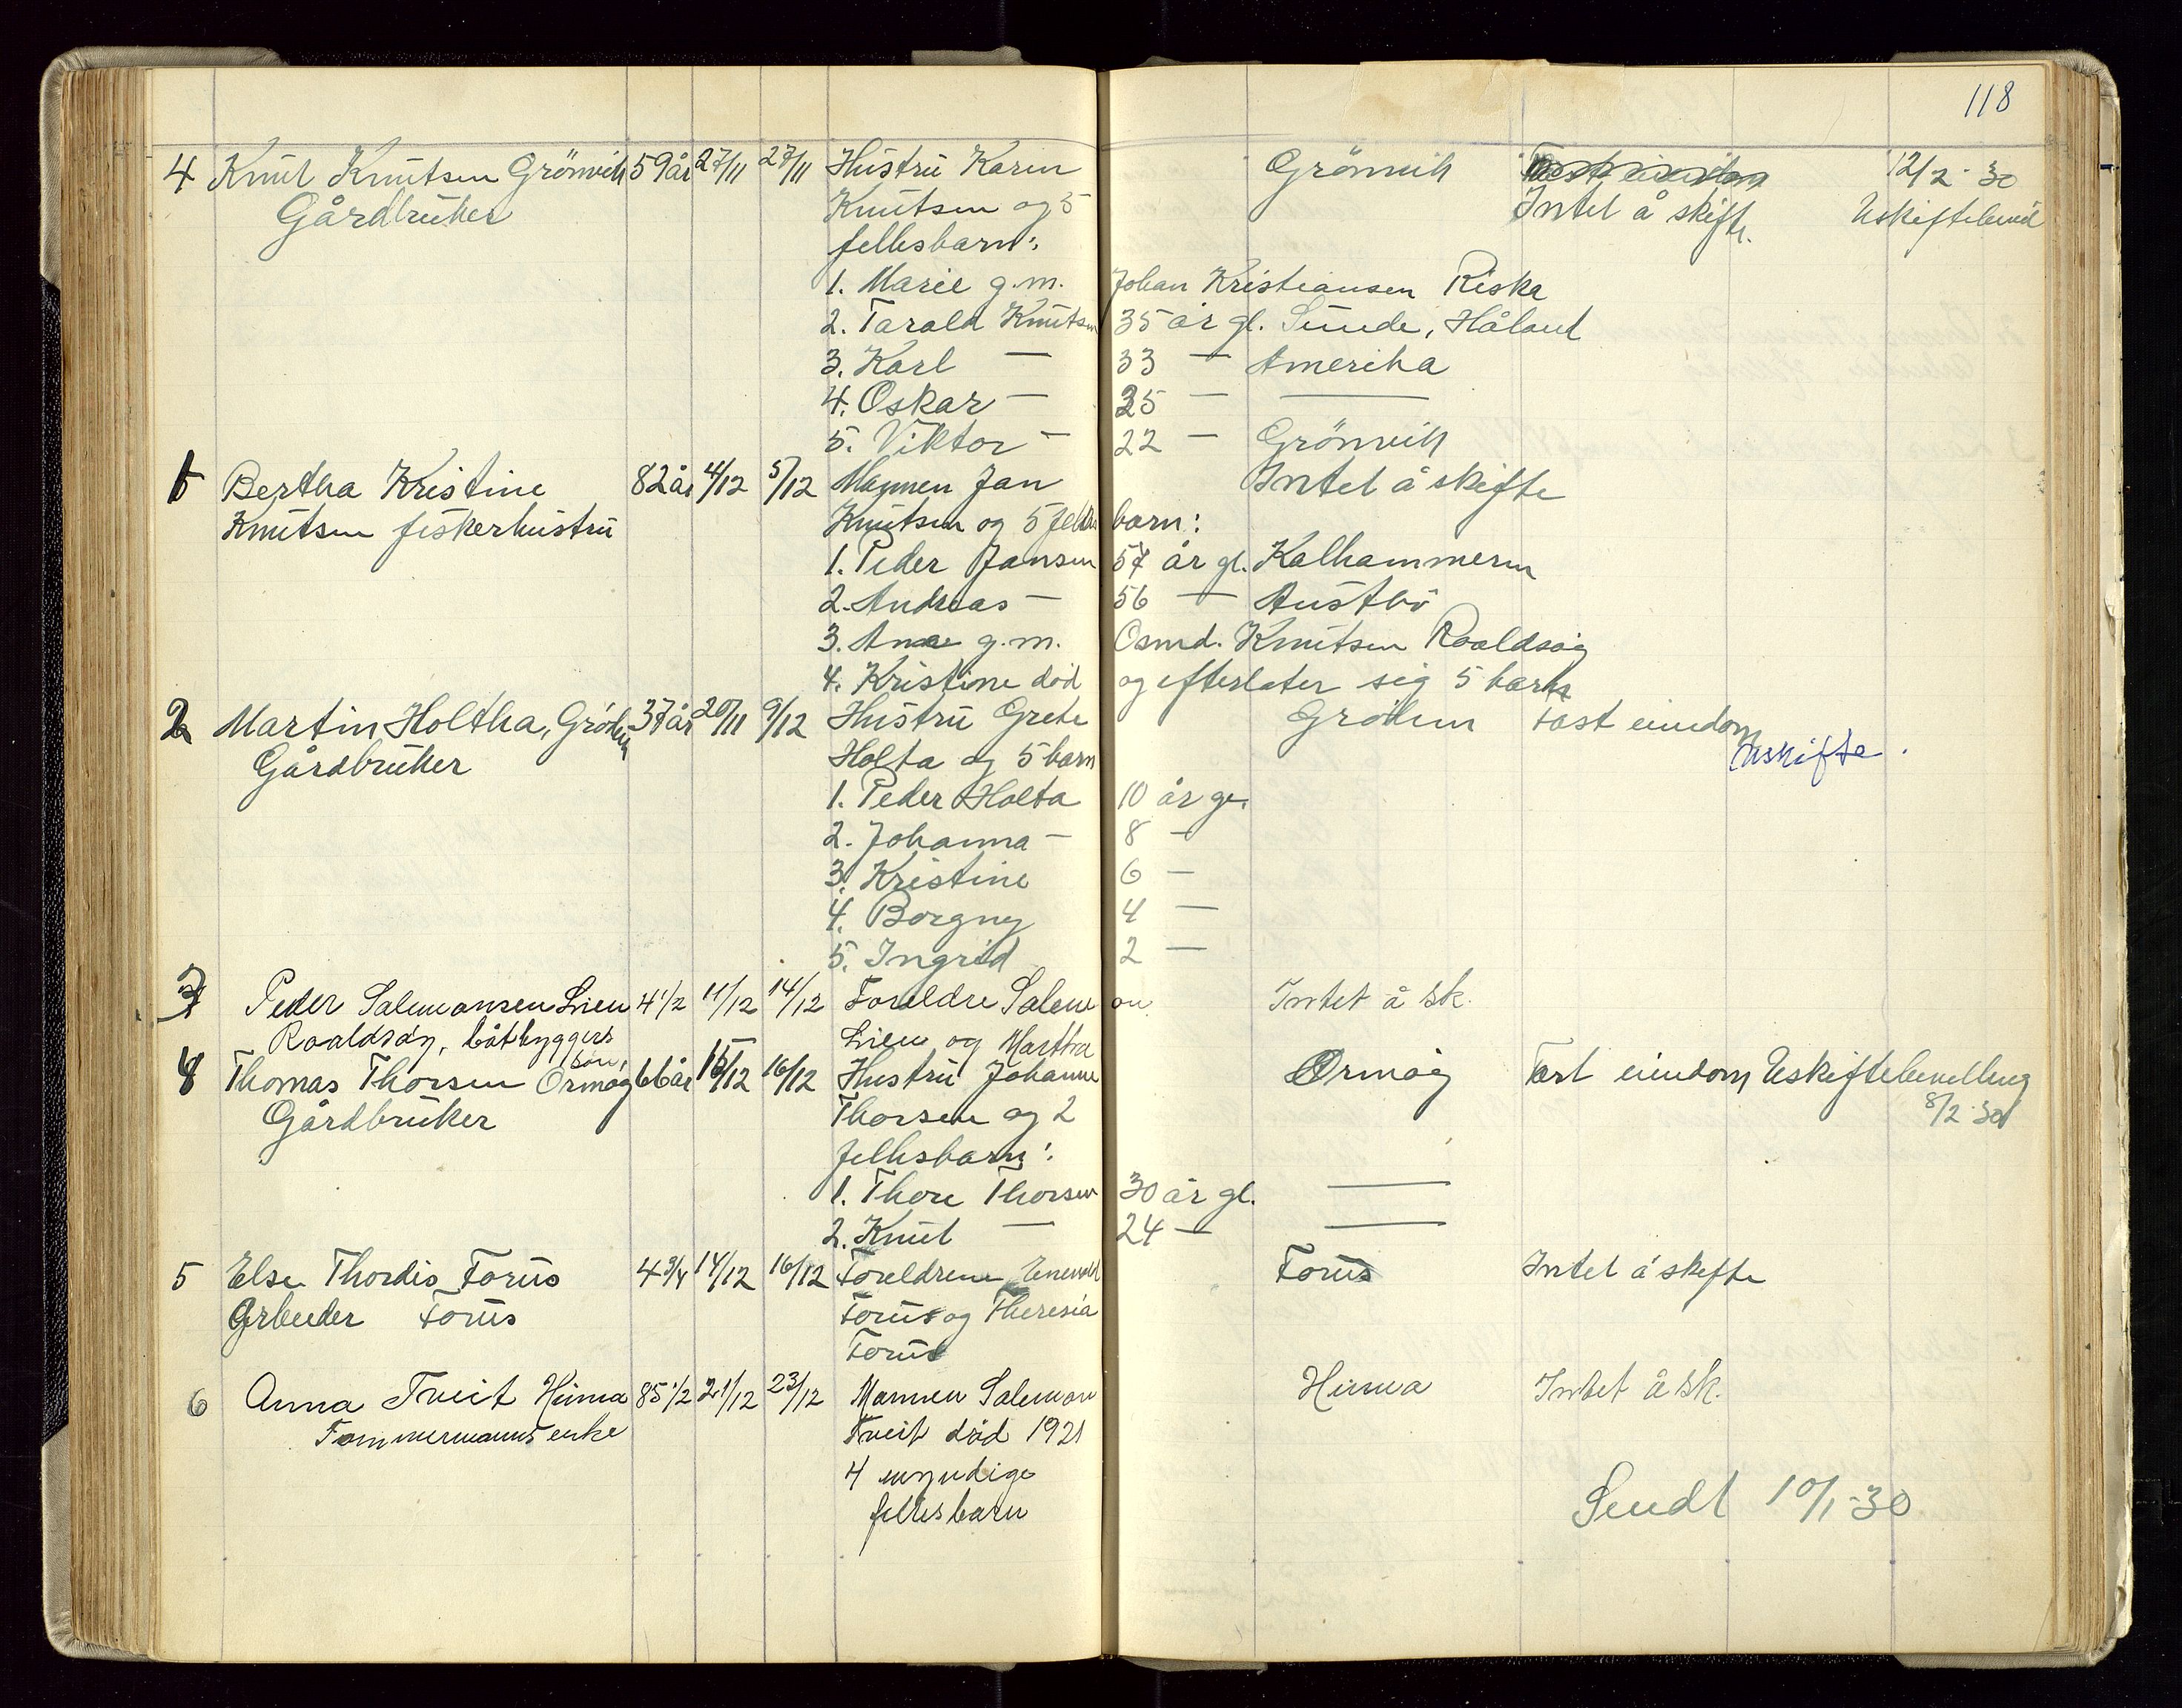 118
4 Knut Knutsen Grönvik 59 år 27/11 27/11 Hustru Karin Grönvik 12/2-30
Gårdbruker Knutsen og 5 Intet å skifte. Uskiftebevil
fellesbarn:
1. Marie g.m. Johan Kristiansen Riska
2. Tarald Knutsen 35 år gl. Sunde, Håland
3. Karl — 33 — Amerika
4. Oskar — 25 — —
5. Viktor — 22 — Grönvik
1 Bertha Kristine 82 år 4/12 5/12 Mannen Jan Intet å skifte
Knutsen fiskerhustru Knutsen og 5 felles barn:
1. Peder Jansen 57 år gl. Kalhammeren
2. Andreas — 56 — Austbö
3. Ana g.m. Osmd. Knutsen Roaldsöy
4. Kristine död og efterlater sig 5 barn
2 Martin Holtha, Grödem 37 år 20/11 9/12 Hustru Grete Grödem Fast eiendom
Gårdbruker Holta og 5 barn Uskifte.
1. Peder Holta 10 år gl.
2. Johanna — 8 —
3. Kristine 6 —
4. Borgny 4 —
5. Ingrid 2 —
3 Peder Salemonsen Lien 4 1/2 11/12 14/12 Foreldre Salemon Intet å sk.
Roaldsöy, båtbyggers Lien og Martha
sön,
4 Thomas Thorsen Ormöy 66 år 15/12 16/12 Hustru Johanne Ormöy Fast eiendom Uskiftebevilling
Gårdbruker Thorsen og 2 8/2-30
fellesbarn:
1. Thore Thorsen 30 år gl. —
2. Knut — 24 — —
5 Else Thordis Forus 4 3/4 14/12 16/12 Foreldrene Enevald Forus Intet å skifte
Arbeider Forus Forus og Theresia
Forus
6 Anna Tveit Hunna 85 1/2 21/12 23/12 Mannen Salemon Hunna Intet å sk.
Tømmermanns enke Tveit död 1921
4 myndige
fellesbarn
Sendt 10/1-30